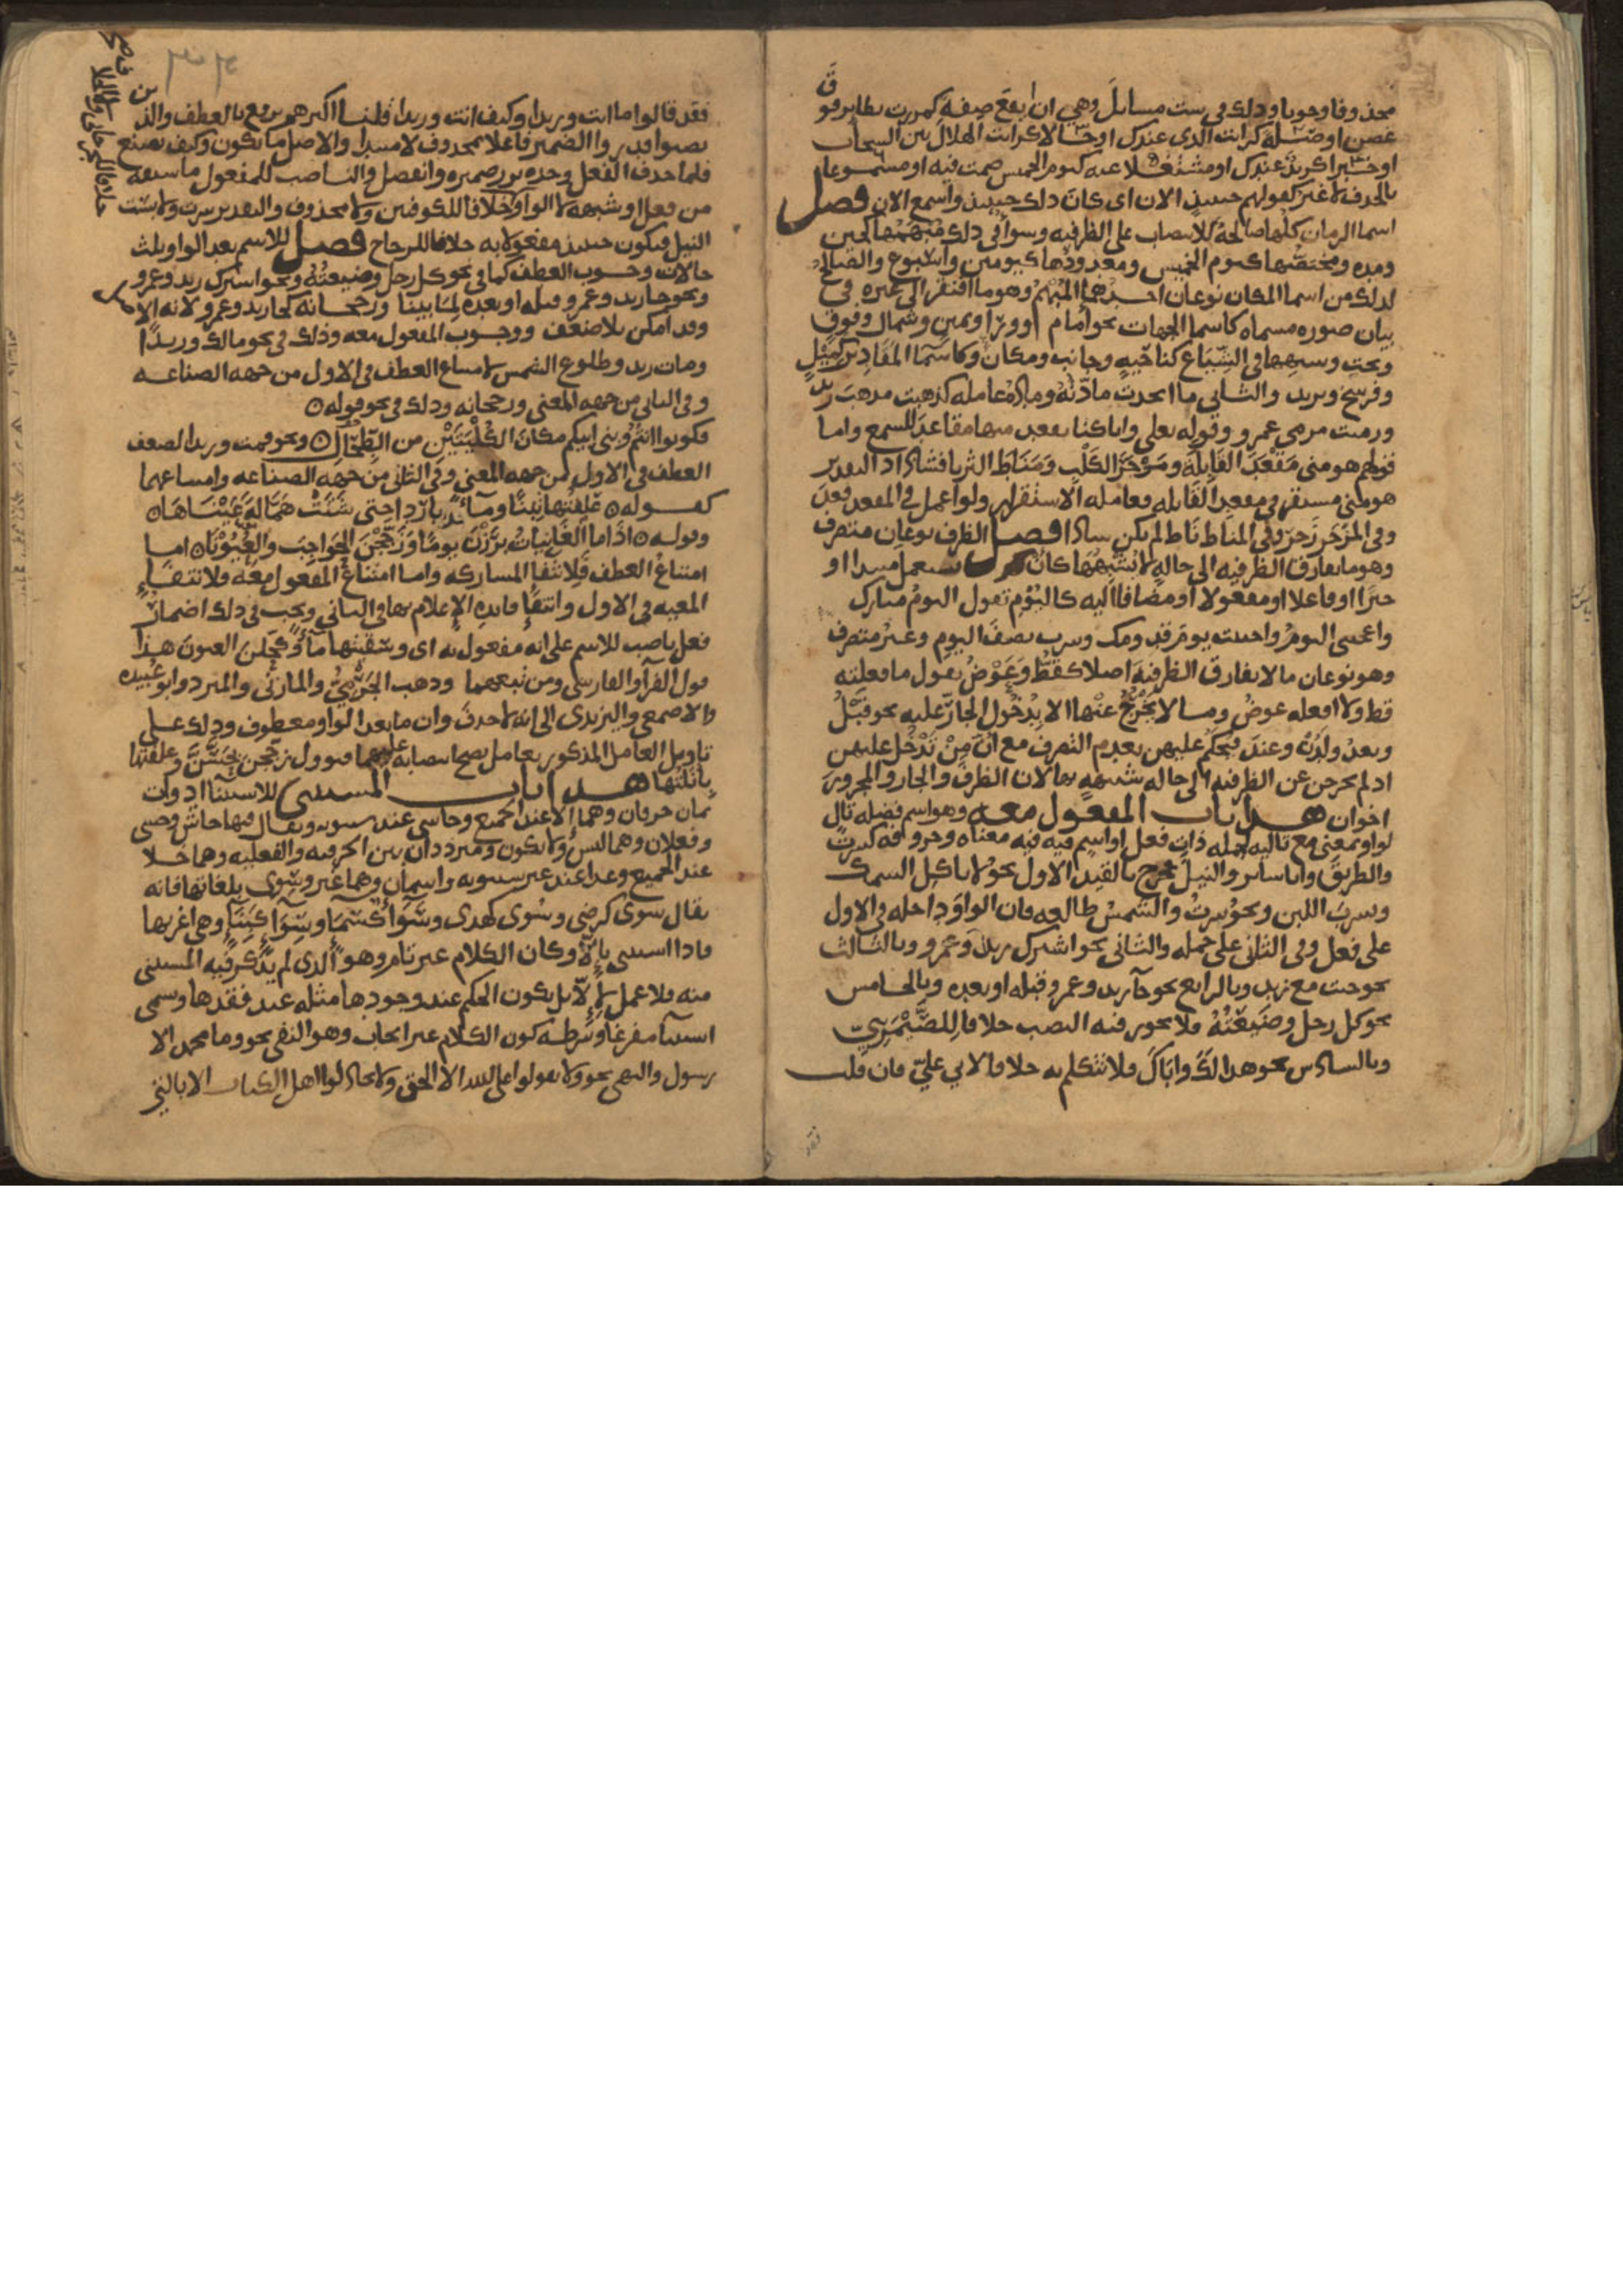 محذوفا وجوبا وذلك في ست مسائل وهي ان يقع صفة كمررت بطاير فوق
غصن او صلة كرايت الذي عندك او حالا كرايت الهلال بين السحاب
او خبرا كزيد عندك او مشتغلا عنه كيوم الخميس صمت فيه او مسموعا
بالحذف لا غير كقولهم حينيذ الان اى كان ذلك حينيذ واسمع الان فصل
اسما الزمان كلها صالحة للانتصاب على الظرفيه وسوا في ذلك مبهمها كحين
ومدة ومختصها كيوم الخميس ومعدودها كيومين واسبوع والصالح
لذلك من اسما المكان نوعان احدهما المبهم وهو ما افتقر الى غيره في
بيان صوره مسماه كاسما الجهات نحو امام ووراء ويمين وشمال وفوق
وتحت وشبهها في الشياع كناحيه وجانب ومكان وكاسما المقادير كميل
وفرسخ وبريد والثاني ما اتحدت مادته ومادة عامله كذهبت مذهب زيد
ورميت مرمى عمرو وقوله تعلى وانا كنا نقعد منها مقاعد للسمع واما
قولهم هو مني مقعد القابلة ومزجر الكلب ومناط الثريا فشاذ اذ التقدير
هو مني مستقر في مقعد القابله فعامله الاستقرار ولو اعمل في المقعد قعد
وفي المزجر زجر وفي المناط ناط لم يكن شاذا فصل الظرف نوعان متصرف
وهو ما يفارق الظرفيه الى حالة لا تشبهها كان يستعمل مبتدا او
خبرا او فاعلا او مفعولا او مضافا اليه كاليوم تقول اليوم مبارك
واعجبني اليوم واحببت يوم قدومك وسرت نصف اليوم وغير متصرف
وهو نوعان ما لا يفارق الظرفية اصلا كقط وعوض تقول ما فعلته
قط ولا افعله عوض وما لا يخرج عنها الا بدخول الجار عليه نحو قبل
وبعد ولدن وعند فيحكم عليهن بعدم التصرف مع ان من تدخل عليهن
اذ لم يخرجن عن الظرفيه الا الى حاله شبيهة بها لان الظرف والجار والمجرور
اخوان هذا باب المفعول معه وهو اسم فضله تال
لواو بمعنى مع تاليه لجمله ذات فعل او اسم فيه معناه وحروفه كسرت
والطريق وانا ساير والنيل فخرج بالقيد الاول نحو لا تاكل السمك
وتشرب اللبن ونحو سرت والشمس طالعه فان الواو داخله في الاول
على فعل وفي الثاني على جمله والثاني نحو اشترك زيد وعمرو وبالثالث
نحو جيت مع زيد وبالرابع نحو جا زيد وعمرو قبله او بعده وبالخامس
نحو كل رجل وضيعته فلا يجوز فيه النصب خلافا للصيمري
وبالسادس نحو هذا لك واباك فلا تتكلم به خلافا لابي علي فان قلت
فقد قالوا ما انت وزيدا وكيف انت وزيدا قلنا اكثرهم يرفع بالعطف والذين
نصبوا قدروا الضمير فاعلا لمحذوف لا مبتدا والاصل ما تكون وكيف تصنع
فلما حذف الفعل وحده برز ضميره وانفصل والناصب للمفعول ما سبقه
من فعل او شبهه لا الواو خلافا للكوفيين ولا محذوف والتقدير سرت ولابست
النيل فيكون حينيذ مفعولا به خلافا للزجاج فصل للاسم بعد الواو ثلث
حالات وجوب العطف كما في نحو كل رجل وضيعته ونحو اشترك زيد وعمرو
ونحو جا زيد وعمرو قبله او بعده لما بينا ورجحانه كجا زيد وعمرو لانه الاصل
وقد امكن بلا ضعف ووجوب المفعول معه وذلك في نحو مالك وزيدا
ومات زيد وطلوع الشمس لامتناع العطف في الاول من جهه الصناعه
وفي الثاني من جهه المعنى ورجحانه وذلك في نحو قوله
فكونوا انتم وبني ابيكم مكان الكليتين من الطحال ونحو قمت وزيدا لضعف
العطف في الاول من جهه المعنى وفي الثاني من جهه الصناعه وامتناعهما
كقوله علفتها تبنا وماء باردا حتى شتت همالة عيناها
وقوله اذا ما الغانيات برزن يوما وزججن الحواجب والعيونا اما
امتناع العطف فلانتفا المشاركه واما امتناع المفعول معه فلانتفاء
المعيه في الاول وانتفا فايدة الاعلام بها في الثاني ويجب في ذلك اضمار
فعل ناصب للاسم على انه مفعول به اى وسقيتها ماء وكحلن العيون هذا
قول الفرا والفارسي ومن تبعهما وذهب الجرمي والمازني والمبرد وابو عبيده
والاصمعي واليزيدى الى انه لا حذف وان ما بعد الواو معطوف وذلك على
تاويل العامل المذكور بعامل يصح انصبابه عليهما فيوول زججن بحسن وعلفتها
بانلتها هذا باب المستثنى للاستثنا ادوات
ثمان حرفان وهما الا عند الجميع وحاشى عند سيبويه ويقال فيها حاش وحشى
وفعلان وهما ليس ولا يكون ومترددان بين الحرفيه والفعليه وهما خلا
عند الجميع وعدا عند غير سيبويه واسمان وهما غير وسوى بلغاتها فانه
يقال سوى كرضى وسوى كهدى وسواء كسماء وسواء كبناء وهي اغربها
فاذا استثني بالا وكان الكلام غير تام وهو الذى لم يذكر فيه المستثنى
منه فلا عمل لالا بل يكون الحكم عند وجودها مثله عند فقدها ويسمى
استثنا مفرغا وشرطه كون الكلام غير ايجاب وهو النفي نحو وما محمد الا
رسول والنهي نحو ولا تقولوا على الله الا الحق ولا تجادلوا اهل الكتاب الا بالتي